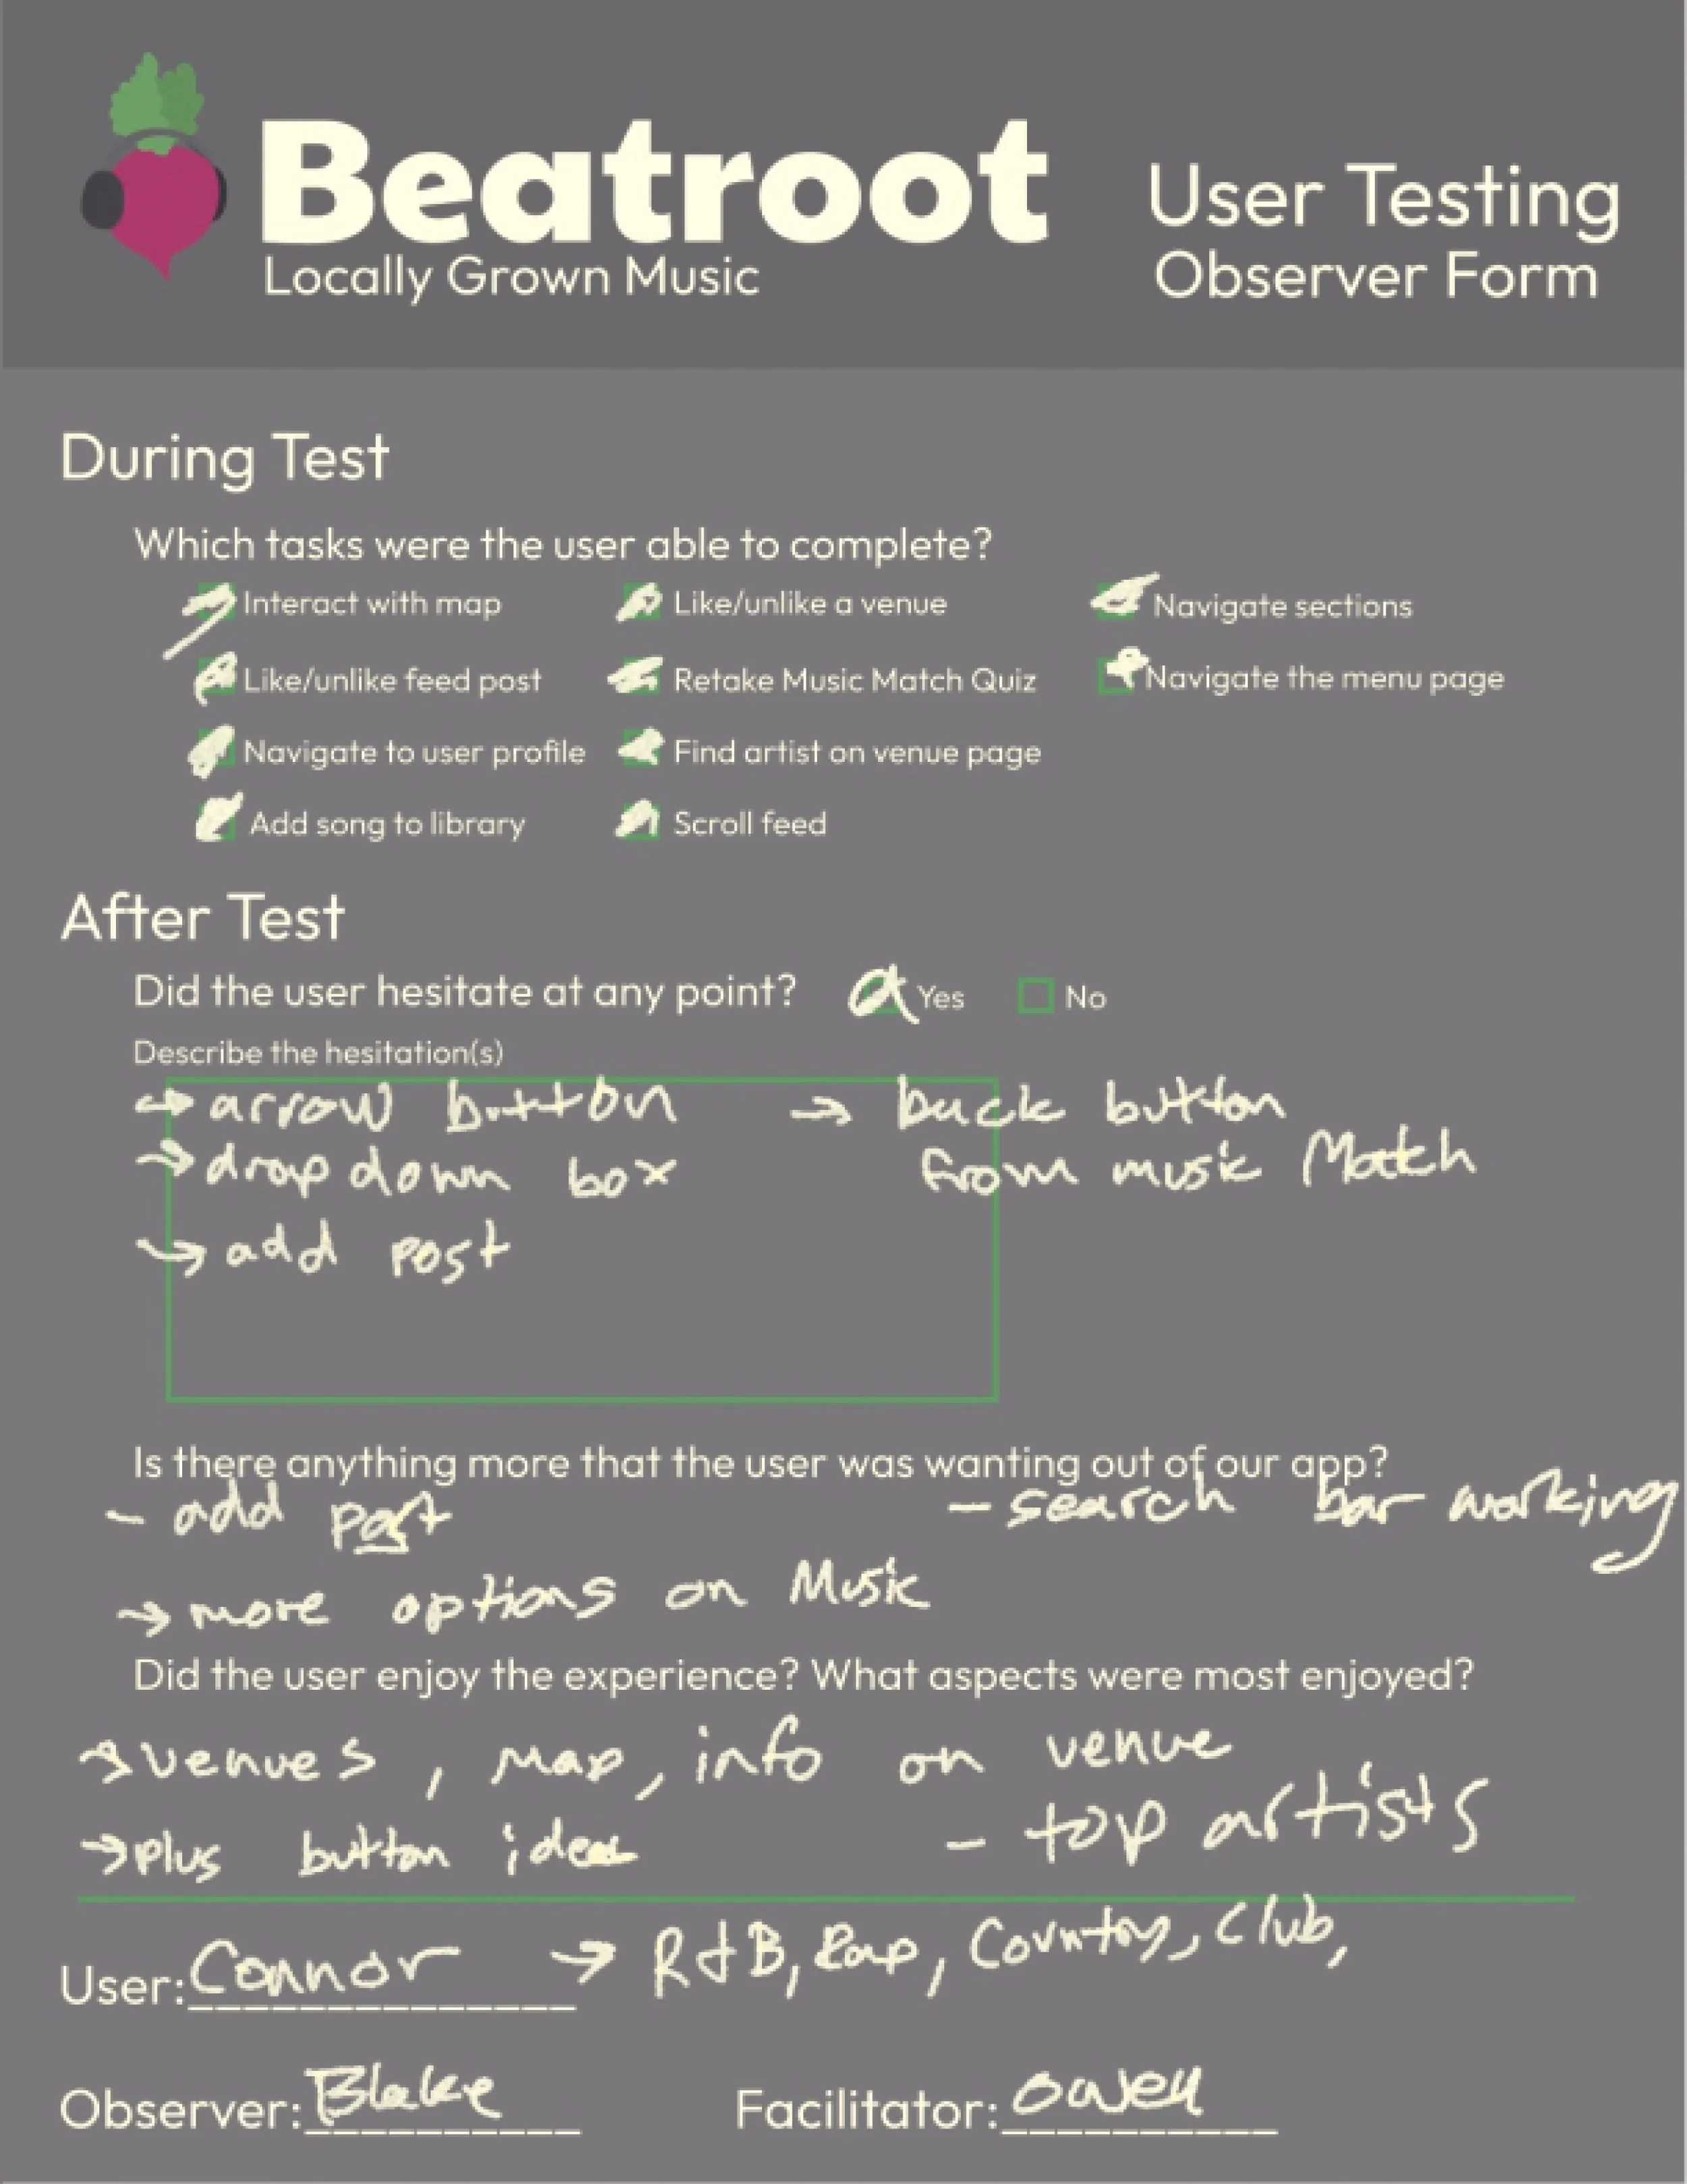 Beatroot
Locally Grown Music
User Testing
Observer Form
During Test
Which tasks were the user able to complete?
Interact with map
Like/unlike a venue
Navigate sections
Like/unlike feed post
Retake Music Match Quiz
Navigate the menu page
Navigate to user profile
Find artist on venue page
Add song to library
Scroll feed
After Test
Did the user hesitate at any point? Yes No
Describe the hesitation(s)
→ arrow button → back button
→ drop down box from music Match
→ add post
Is there anything more that the user was wanting out of our app?
- add post - search bar working
→ more options on Music
Did the user enjoy the experience? What aspects were most enjoyed?
→ venues, map, info on venue
→ plus button idea - top artists
User: Connor → R&B, Rap, Country, Club,
Observer: Blake Facilitator: Owen